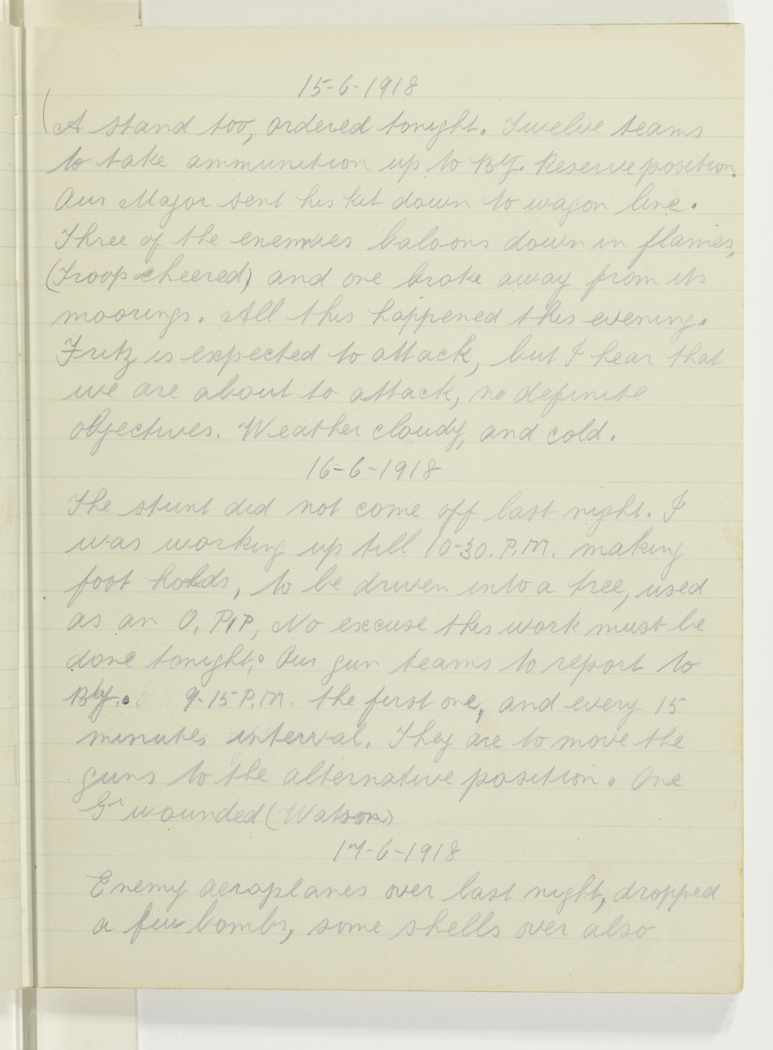 15-6-1918
(A stand too, ordered tonight. Twelve teams
to take ammunition up to Bty. Reserve position.
Our Major sent his kit down to wagon line.
Three of the enemies baloons down in flames,
(Troops cheered) and one broke away from its
moorings. All this happened this evening.
Fritz is expected to attack, but I hear that
we are about to attack, no definite
objectives. Weather cloudy, and cold.
16-6-1918
The stunt did not come off last night. I
was working up till 10-30. P.M. making
foot holds, to be driven into a tree, used
as an O. PIP, No excuse this work must be
done tonight. Our gun teams to report to
Bty. 9-15 P.M. the first one, and every 15
minutes interval. They are to move the
guns to the alternative position. One
Gr wounded (Watson)
17-6-1918
Enemy aeroplanes over last night, dropped
a few bombs, some shells over also